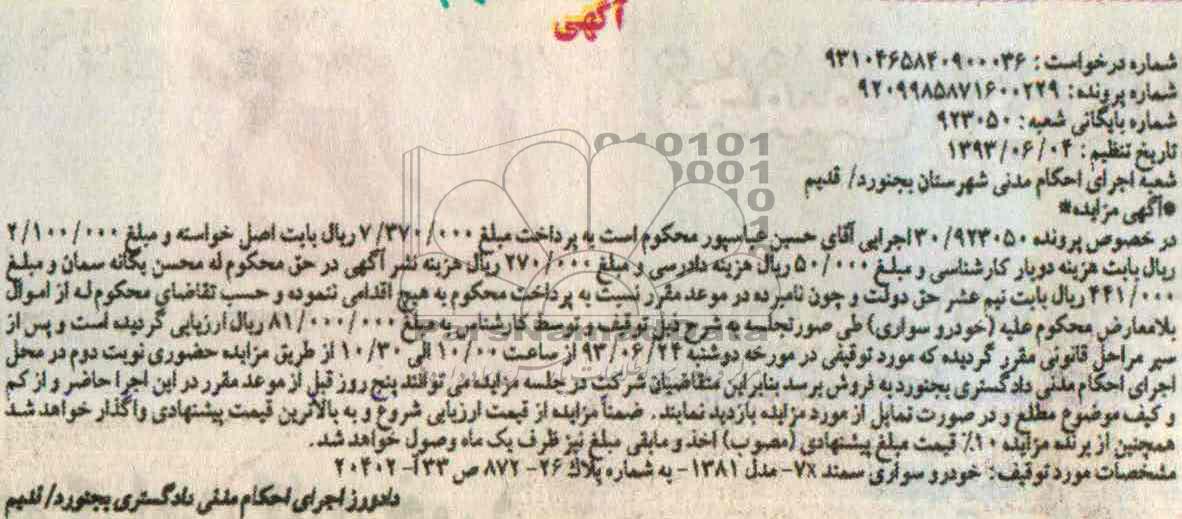 آگهی
شماره درخواست: ۹۳۱۰۴۶۵۸۴۰۹۰۰۰۳۶
شماره پرونده: ۹۲۰۹۹۸۵۸۷۱۶۰۰۲۲۹
شماره بایگانی شعبه: ۹۲۳۰۵۰
تاریخ تنظیم: ۱۳۹۳/۰۶/۰۴
شعبه اجرای احکام مدنی شهرستان بجنورد/ قدیم
*آگهی مزایده*
در خصوص پرونده ۳۰/۹۲۳۰۵۰ اجرایی آقای حسین عباسپور محکوم است به پرداخت مبلغ ۷/۳۷۰/۰۰۰ ریال بابت اصل خواسته و مبلغ ۲/۱۰۰/۰۰۰
ریال بابت هزینه دوبار کارشناسی و مبلغ ۵۰/۰۰۰ ریال هزینه دادرسی و مبلغ ۲۷۰/۰۰۰ ریال هزینه نشر آگهی در حق محکوم له محسن یگانه سمان و مبلغ
۴۴۱/۰۰۰ ریال بابت نیم عشر حق دولت و چون نامبرده در موعد مقرر نسبت به پرداخت محکوم به هیچ اقدامی ننموده و حسب تقاضای محکوم له از اموال
بلامعارض محکوم علیه (خودرو سواری) طی صورتجلسه به شرح ذیل توقیف و توسط کارشناس به مبلغ ۸۱/۰۰۰/۰۰۰ ریال ارزیابی گردیده است و پس از
سیر مراحل قانونی مقرر گردیده که مورد توقیفی در مورخه دوشنبه ۹۳/۰۶/۲۴ از ساعت ۱۰/۰۰ الی ۱۰/۳۰ از طریق مزایده حضوری نوبت دوم در محل
اجرای احکام مدنی دادگستری بجنورد به فروش برسد بنابراین متقاضیان شرکت در جلسه مزایده می توانند پنج روز قبل از موعد مقرر در این اجرا حاضر و از کم
و کیف موضوع مطلع و در صورت تمایل از مورد مزایده بازدید نمایند. ضمناً مزایده از قیمت ارزیابی شروع و به بالاترین قیمت پیشنهادی واگذار خواهد شد
همچنین از برنده مزایده ۱۰٪ قیمت مبلغ پیشنهادی (مصوب) اخذ و مابقی مبلغ نیز ظرف یک ماه وصول خواهد شد.
مشخصات مورد توقیف: خودرو سواری سمند X۷- مدل ۱۳۸۱- به شماره پلاک ۲۶- ۸۷۲ ص ۳۳ آ- ۲۰۴۰۲
دادورز اجرای احکام مدنی دادگستری بجنورد/ قدیم